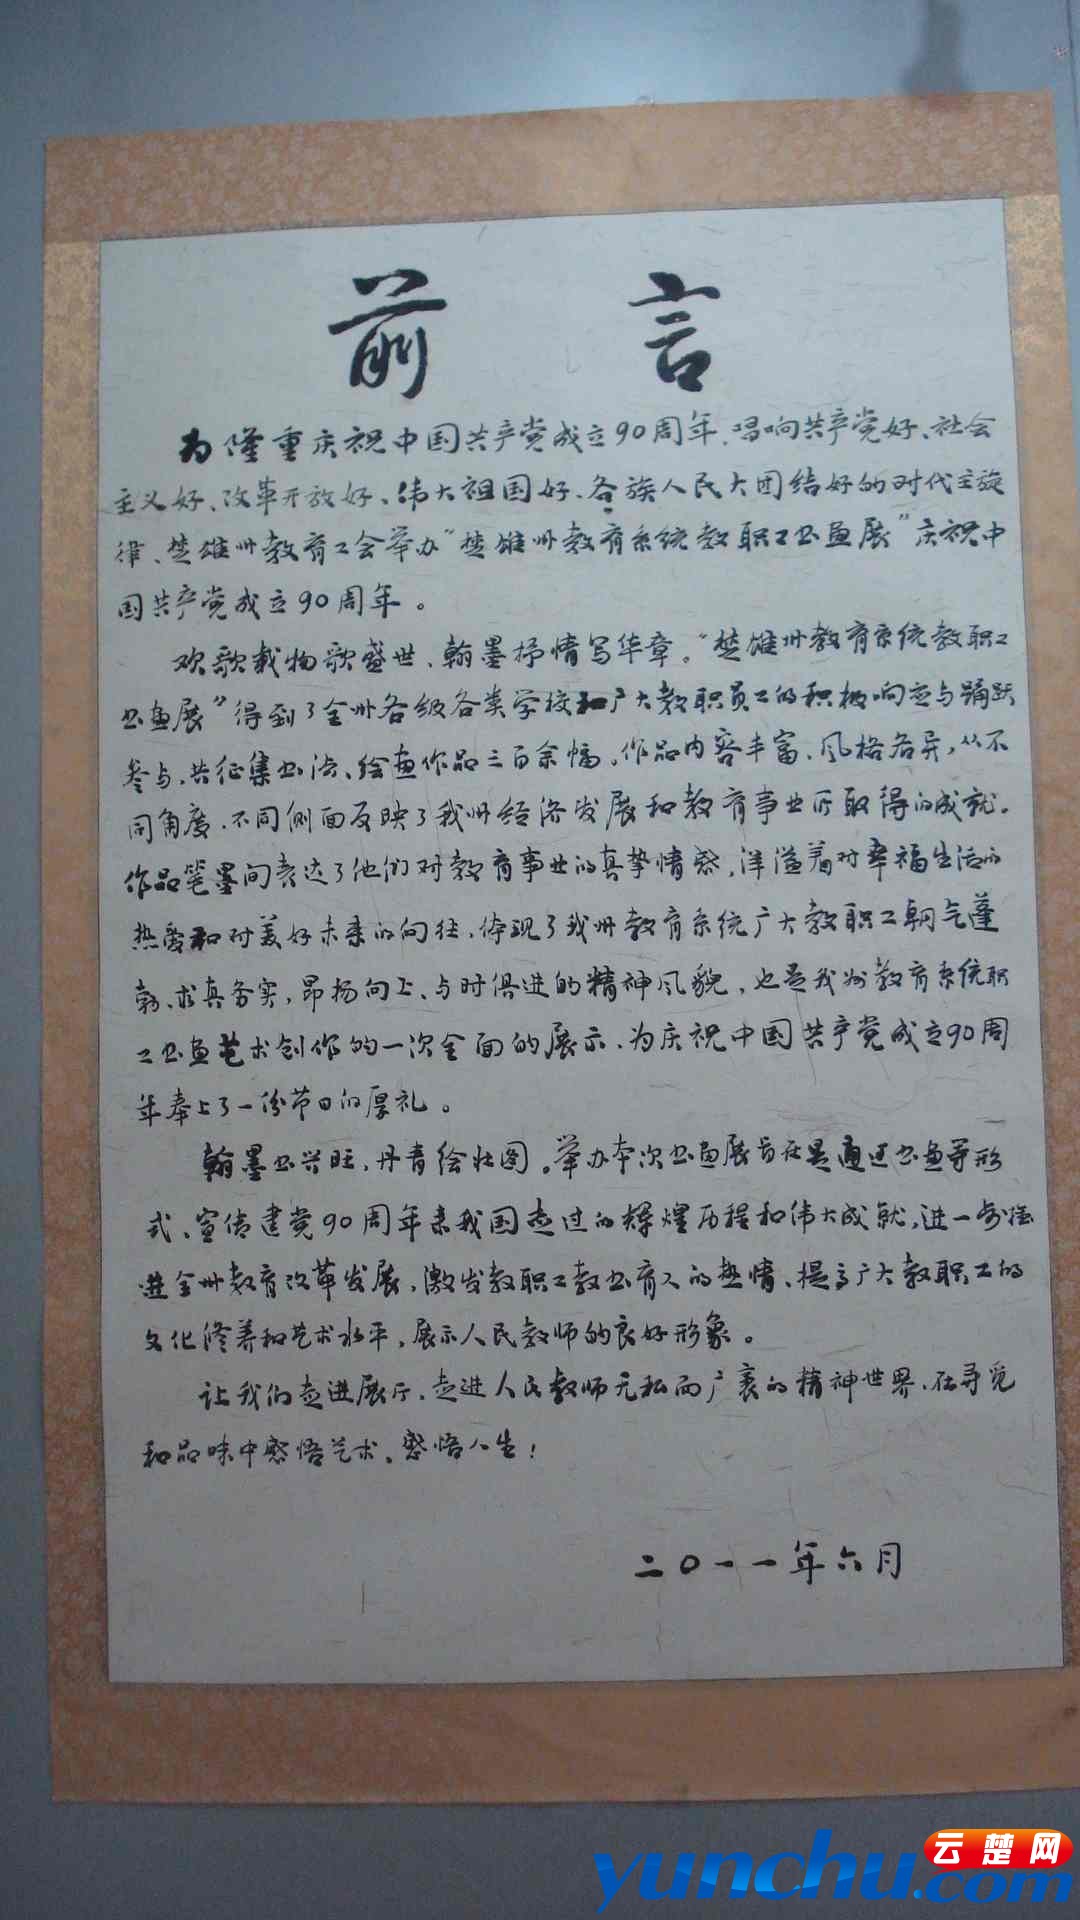 前言
为隆重庆祝中国共产党成立90周年、唱响共产党好、社会
主义好、改革开放好、伟大祖国好、各族人民大团结好的时代主旋
律、楚雄州教育工会举办“楚雄州教育系统教职工书画展”庆祝中
国共产党成立90周年。
欢歌载物歌盛世、翰墨抒情写华章。“楚雄州教育系统教职工
书画展”得到了全州各级各类学校和广大教职员工的积极响应与踊跃
参与，共征集书法、绘画作品三百余幅。作品内容丰富、风格各异，从不
同角度、不同侧面反映了我州经济发展和教育事业所取得的成就。
作品笔墨间表达了他们对教育事业的真挚情感，洋溢着对幸福生活的
热爱和对美好未来的向往，体现了我州教育系统广大教职工朝气蓬
勃、求真务实，昂扬向上、与时俱进的精神风貌，也是我州教育系统职
工书画艺术创作的一次全面的展示、为庆祝中国共产党成立90周
年奉上了一份节日的厚礼。
翰墨书兴旺，丹青绘壮图。举办本次书画展旨在是通过书画等形
式、宣传建党90周年来我国走过的辉煌历程和伟大成就，进一步推
进全州教育改革发展，激发教职工教书育人的热情、提高广大教职工的
文化修养和艺术水平，展示人民教师的良好形象。
让我们走进展厅，走进人民教师无私而广袤的精神世界、在寻觅
和品味中感悟艺术、感悟人生！
二〇一一年六月
云楚网
yunchu.com